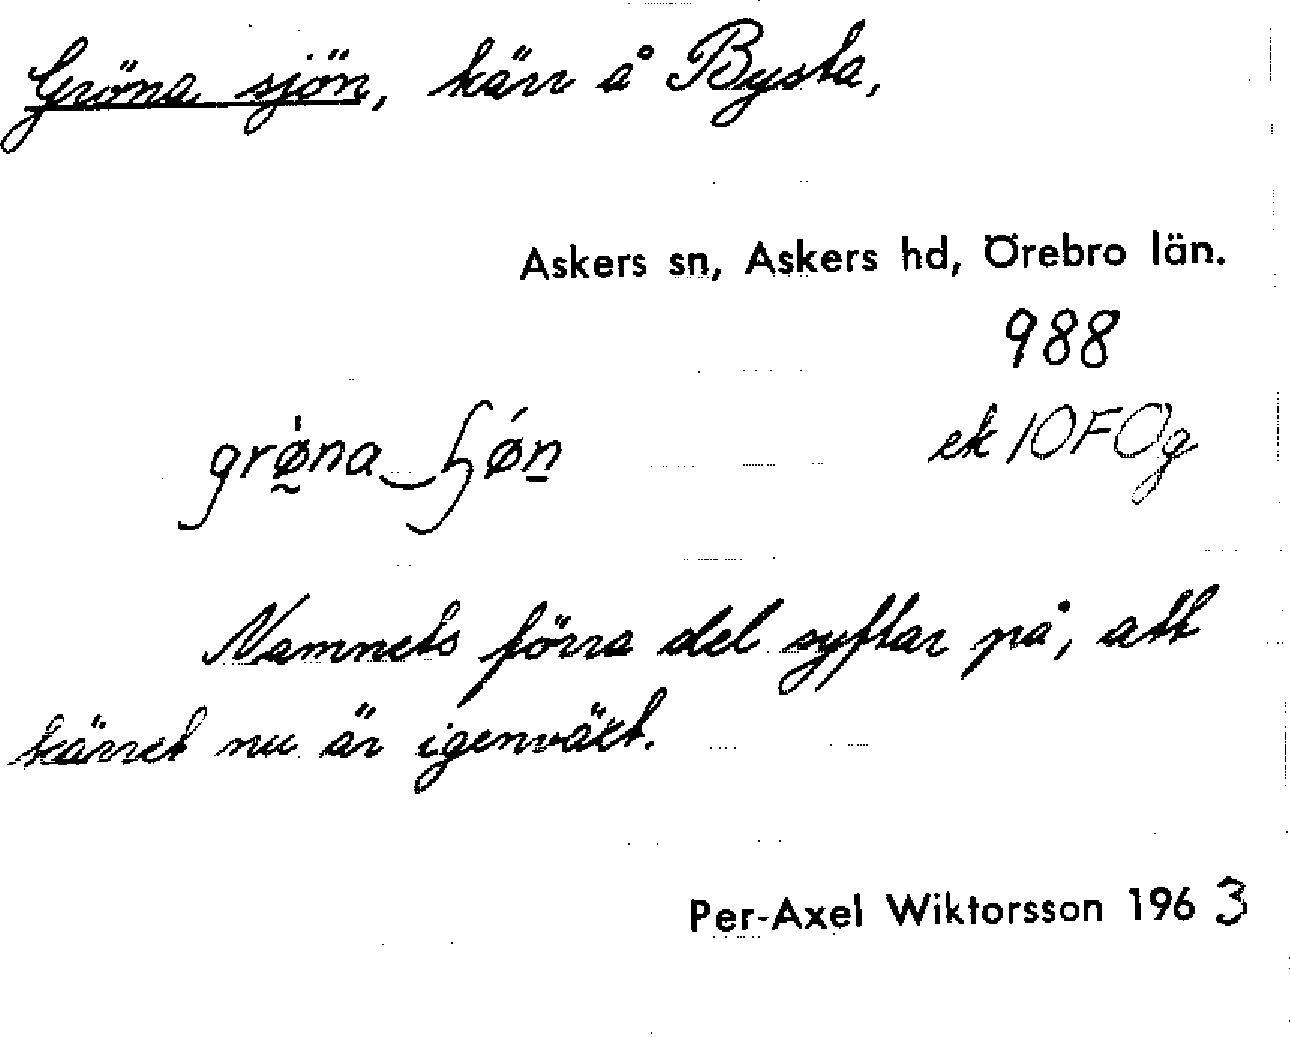 Gröna sjön, kärr å Bysta,
Askers sn, Askers hd, Örebro län.
988
ek 10F0g
Namnets förra del syftar på, att
kärret nu är igenväxt.
Per-Axel Wiktorsson 1963